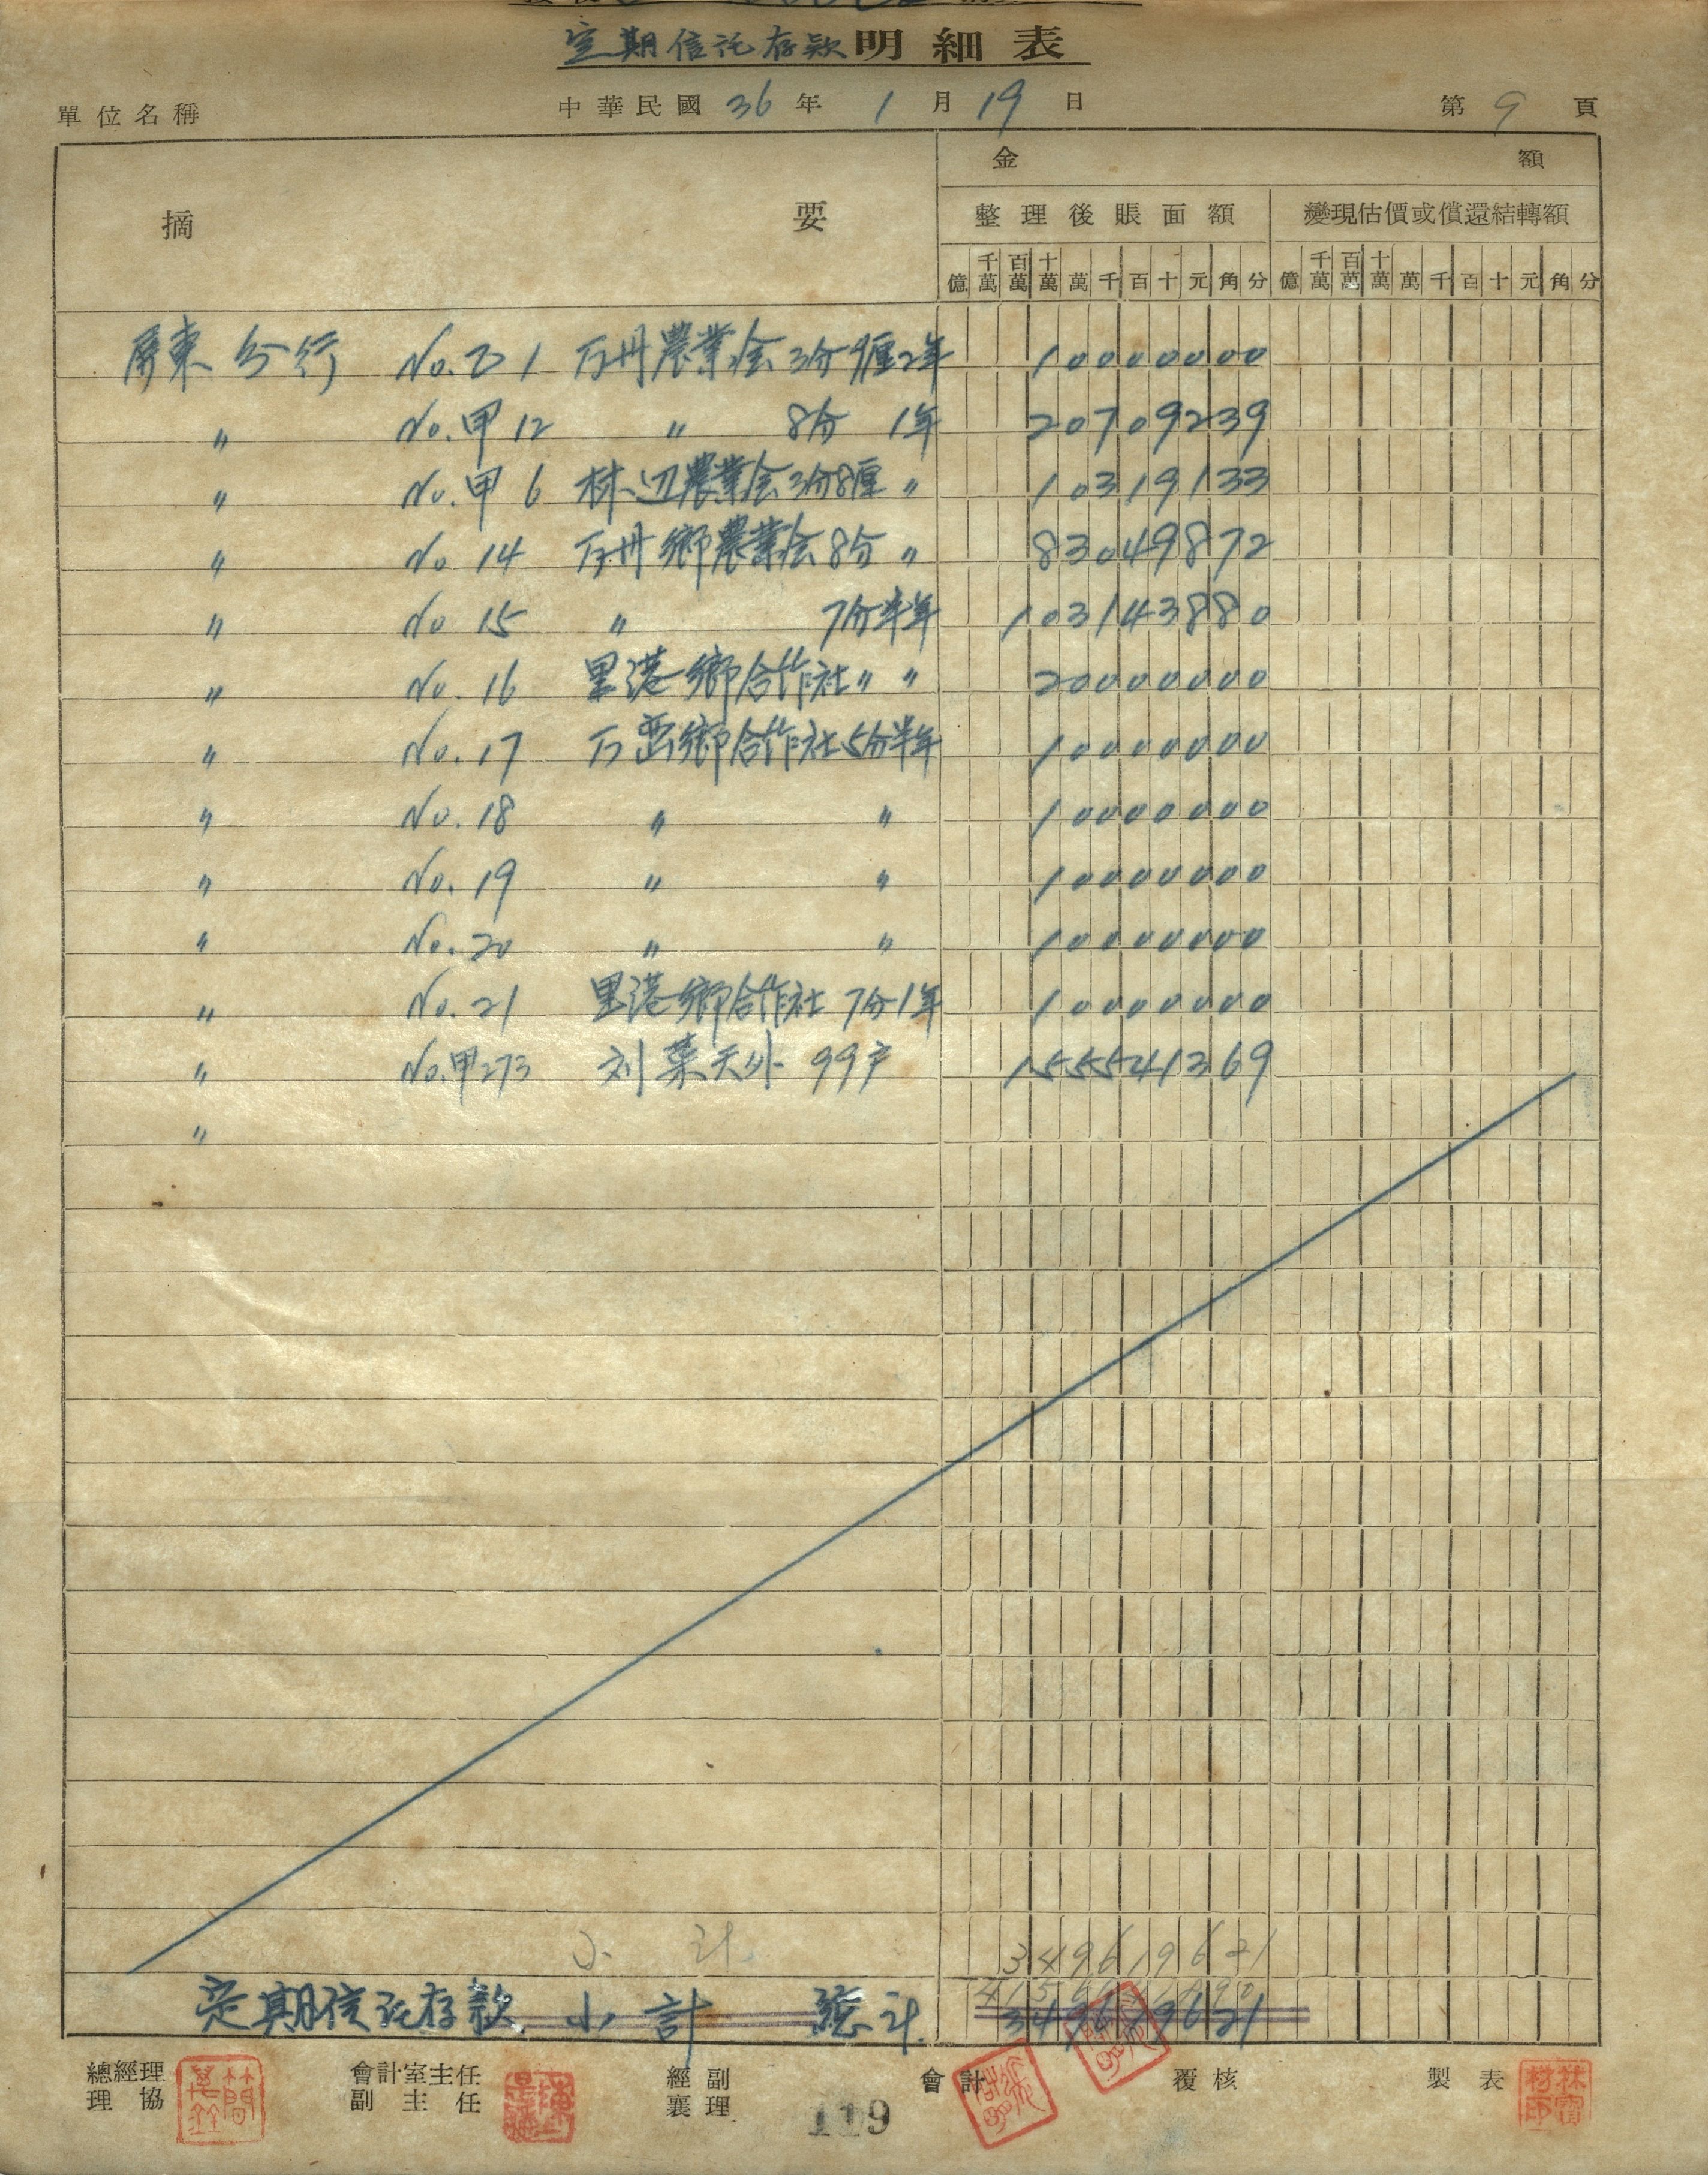 定期信託存款明細表
單位名稱 中華民國36年1月19日 第9頁
摘要 金額
整理後賬面額 變現估價或償還結轉額
億 千萬 百萬 十萬 萬 千 百 十 元 角 分 億 千萬 百萬 十萬 萬 千 百 十 元 角 分
屏東分行 No.乙1 万丹農業会3分9厘2年 10000000
〃 No.甲12 〃 8分 1年 20709239
〃 No.甲6 林辺農業会3分8厘 〃 10319133
〃 No 14 万丹鄉農業会8分 〃 83049872
〃 No 15 〃 7分半年 103143880
〃 No.16 里港鄉合作社 〃 〃 20000000
〃 No.17 万巒鄉合作社5分半年 10000000
〃 No.18 〃 〃 10000000
〃 No.19 〃 〃 10000000
〃 No.20 〃 〃 10000000
〃 No.21 里港鄉合作社 7分1年 10000000
〃 No.甲273 刘葉天外 99戸 155541369
〃
小計 349619621
定期信託存款 小計 總計 349619621
總經理 會計室主任 經副 會計 覆核 製表
理協 副主任 襄理
119